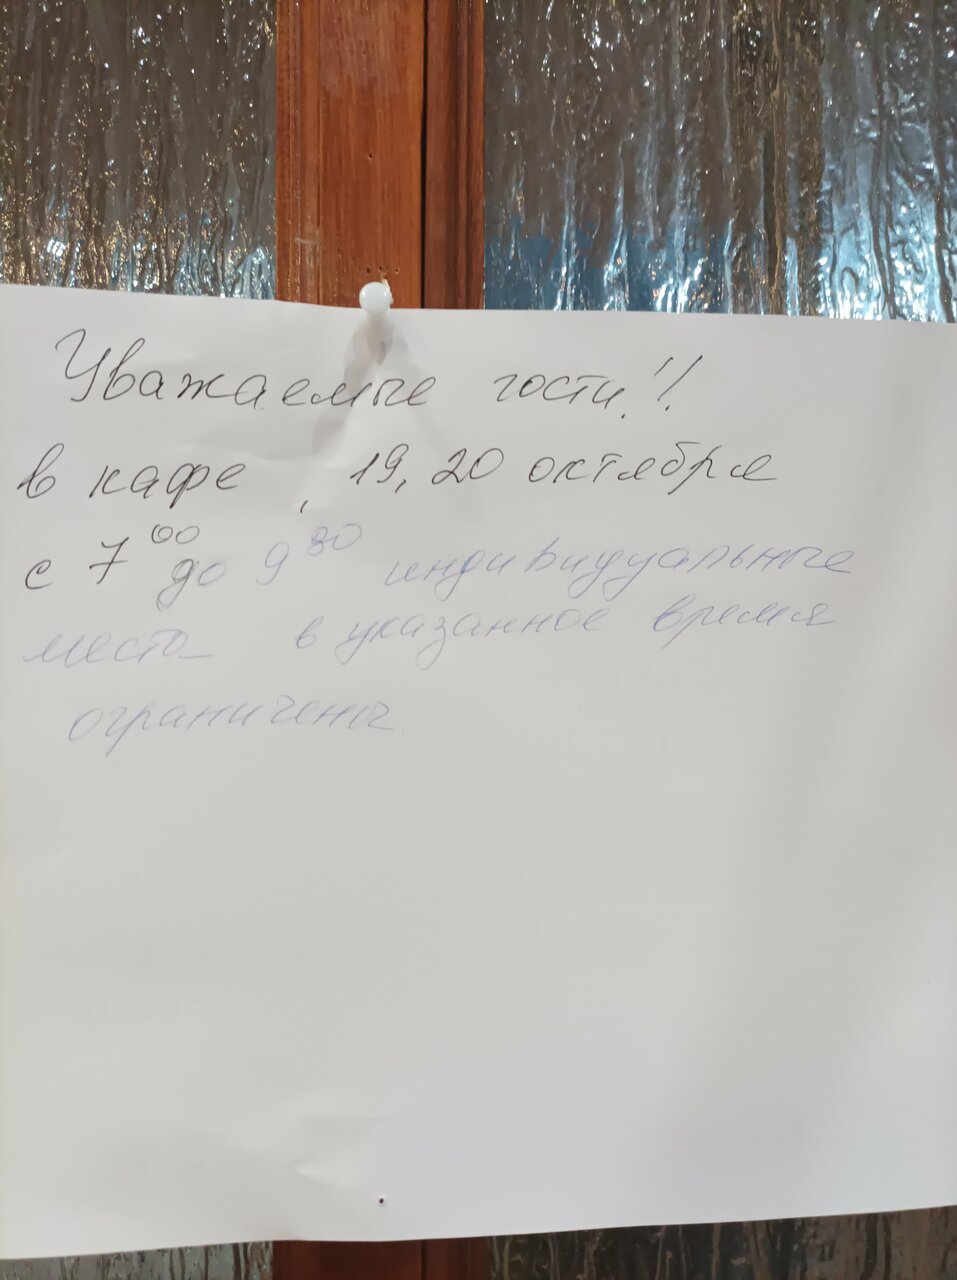 Уважаемые гости!!
в кафе, 19, 20 октября
с 7⁰⁰ до 9³⁰ индивидуальные
места в указанное время
ограничены.